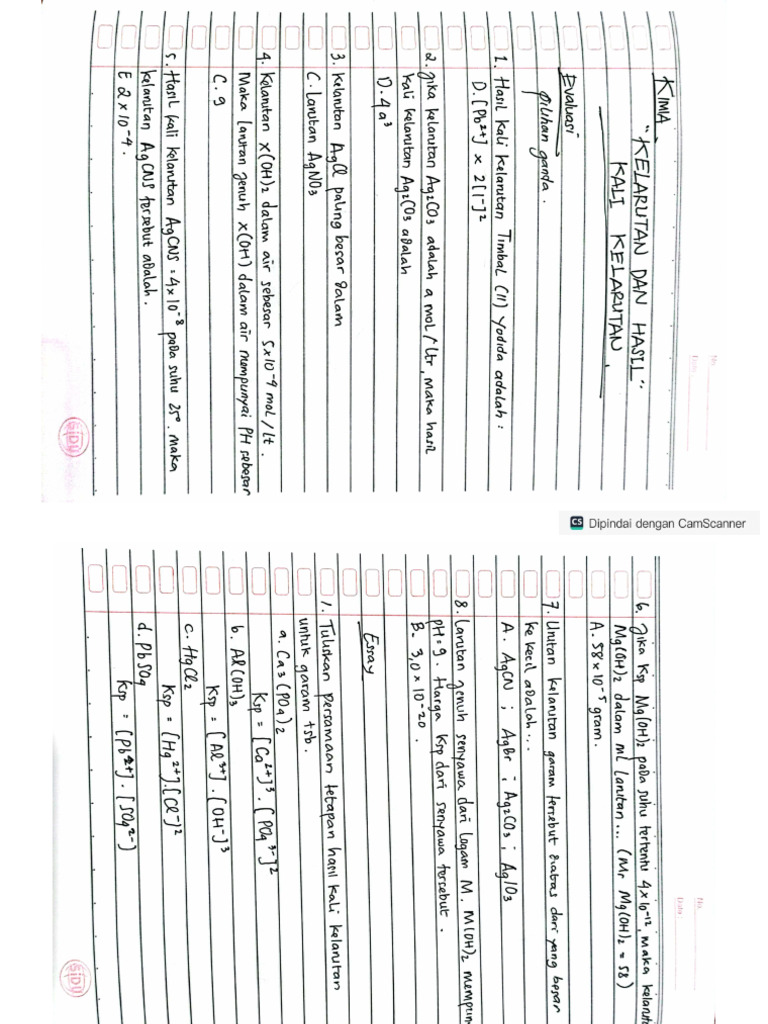 KIMIA
"KELARUTAN DAN HASIL"
KALI KELARUTAN.
Evaluasi
pilihan ganda.
1. Hasil kali kelarutan Timbal (II) Yodida adalah :
D. [Pb²⁺] × 2[I⁻]²
2. Jika kelarutan Ag₂CO₃ adalah a mol/Ltr, maka hasil
kali kelarutan Ag₂CO₃ adalah
D. 4a³
3. Kelarutan AgCl paling besar dalam
C. Larutan AgNO₃
4. Kelarutan x(OH)₂ dalam air sebesar 5×10⁻⁴ mol/Lt.
Maka larutan jenuh x(OH) dalam air mempunyai PH sebesar
C. 9
5. Hasil kali kelarutan AgCNS = 4×10⁻⁸ pada suhu 25°. maka
kelarutan AgCNS tersebut adalah.
E 2×10⁻⁴.
No
Date
SIDU
CS Dipindai dengan CamScanner
6. Jika Ksp Mg(OH)₂ pada suhu tertentu 4×10⁻¹², maka
Mg(OH)₂ dalam ml larutan... (Mr Mg(OH)₂ = 58)
A. 58×10⁻⁵ gram.
7. Urutan kelarutan garam tersebut diatas dari yang besar
ke kecil adalah...
A. AgCN ; AgBr ; Ag₂CO₃ ; AgIO₃
8. Larutan jenuh senyawa dari logam M. M(OH)₂
pH = 9. Harga Ksp dari senyawa tersebut.
B. 3,0×10⁻²⁰.
Essay
1. Tuliskan persamaan tetapan hasil kali kelarutan
untuk garam tsb.
a. Ca₃(PO₄)₂
Ksp = [Ca²⁺]³ . [PO₄³⁻]²
b. Al(OH)₃
Ksp = [Al³⁺] . [OH⁻]³
c. HgCl₂
Ksp = [Hg²⁺].[Cl⁻]²
d. PbSO₄
Ksp = [Pb²⁺] . [SO₄²⁻]
No
Date
SIDU